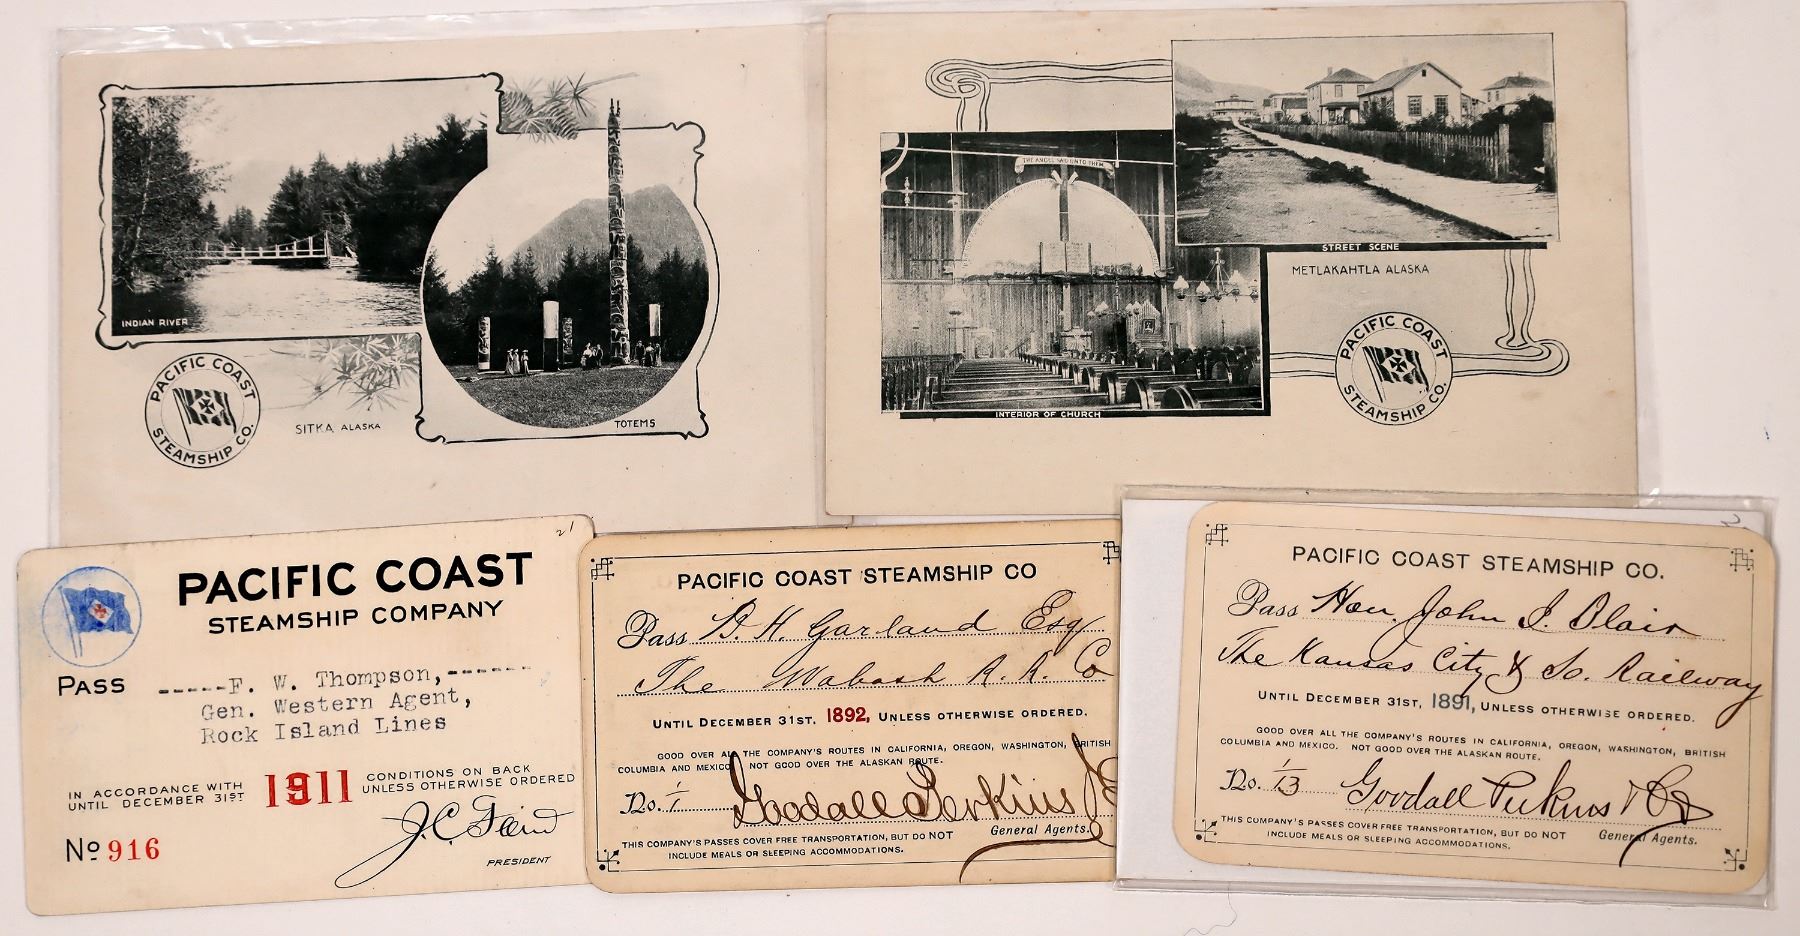 INDIAN RIVER
TOTEMS
SITKA ALASKA
PACIFIC COAST
STEAMSHIP CO.
THE ANGEL SAID UNTO THEM
INTERIOR OF CHURCH
STREET SCENE
METLAKAHTLA ALASKA
PACIFIC COAST
STEAMSHIP CO.
21
PACIFIC COAST
STEAMSHIP COMPANY
PASS -----F. W. Thompson,-------
Gen. Western Agent,
Rock Island Lines
IN ACCORDANCE WITH 1911 CONDITIONS ON BACK
UNTIL DECEMBER 31ST UNLESS OTHERWISE ORDERED
No 916
J.C. Ford
PRESIDENT
PACIFIC COAST STEAMSHIP CO
Pass B. H. Garland Esq
The Wabash R. R. Co
UNTIL DECEMBER 31ST, 1892, UNLESS OTHERWISE ORDERED.
GOOD OVER ALL THE COMPANY'S ROUTES IN CALIFORNIA, OREGON, WASHINGTON, BRITISH
COLUMBIA AND MEXICO. NOT GOOD OVER THE ALASKAN ROUTE.
No. 1/1 Goodall Perkins & Co
General Agents.
THIS COMPANY'S PASSES COVER FREE TRANSPORTATION, BUT DO NOT
INCLUDE MEALS OR SLEEPING ACCOMMODATIONS.
PACIFIC COAST STEAMSHIP CO.
Pass Hon. John I. Blair
The Kansas City & So. Railway
UNTIL DECEMBER 31ST, 1891, UNLESS OTHERWISE ORDERED.
GOOD OVER ALL THE COMPANY'S ROUTES IN CALIFORNIA, OREGON, WASHINGTON, BRITISH
COLUMBIA AND MEXICO. NOT GOOD OVER THE ALASKAN ROUTE.
No. 1/13 Goodall Perkins & Co
General Agents.
THIS COMPANY'S PASSES COVER FREE TRANSPORTATION, BUT DO NOT
INCLUDE MEALS OR SLEEPING ACCOMMODATIONS.